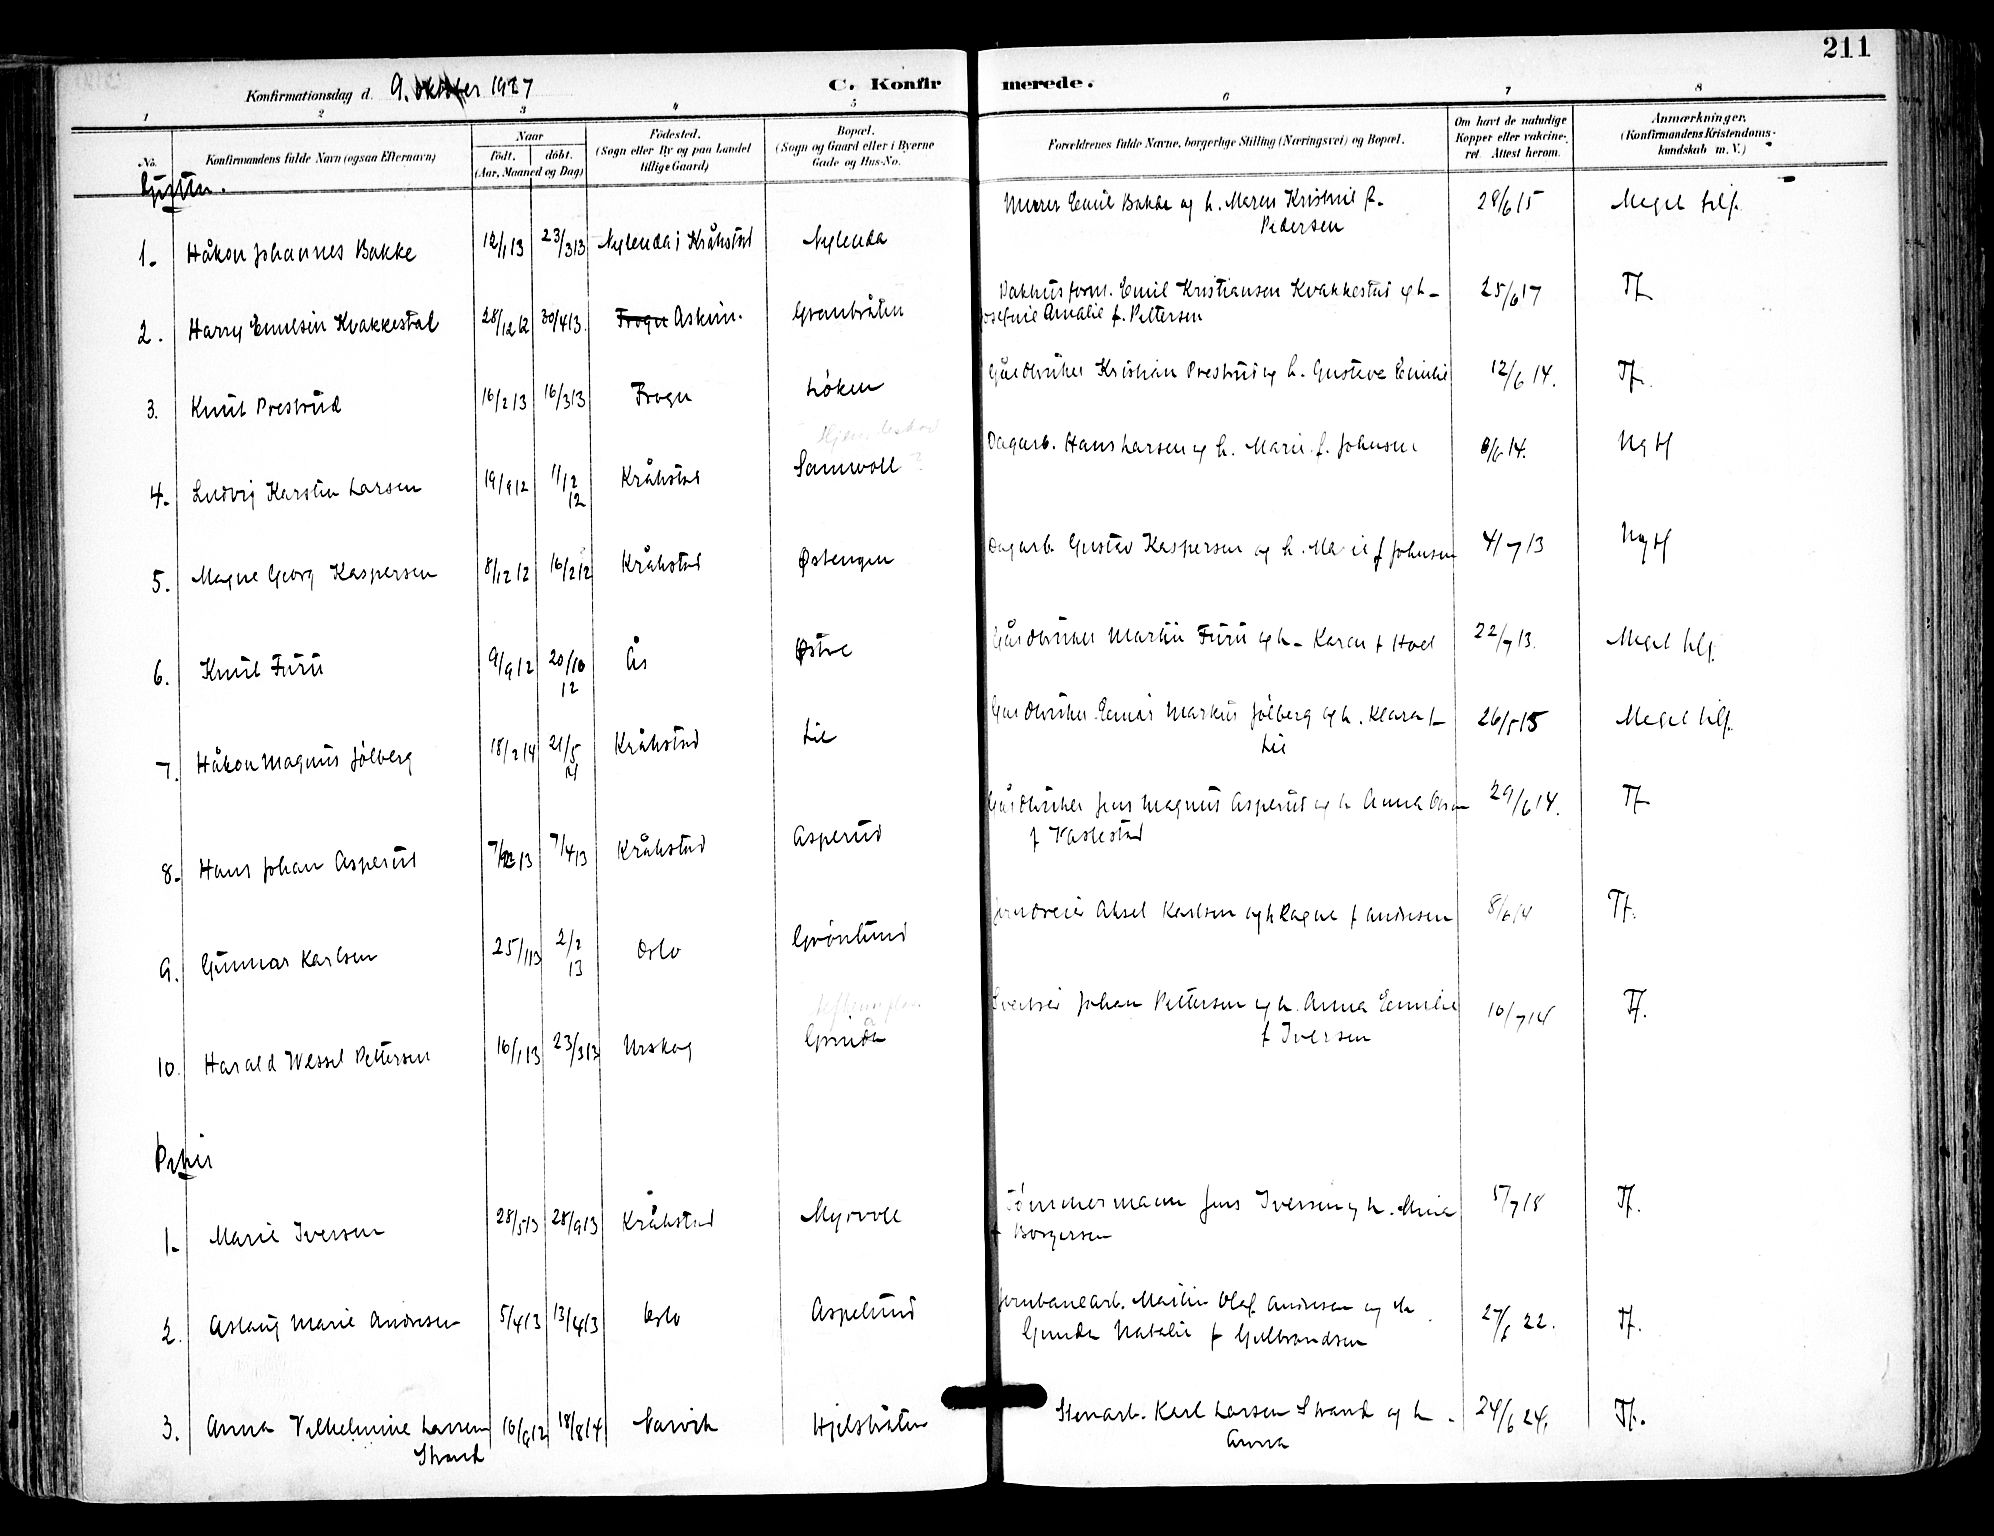 211
Konfirmationsdag d. 9. oktober 1927
C. Konfirmerede.
1 2 3 4 5 6 7 8
No. Konfirmandens fulde Navn (ogsaa Efternavn) Naar født. døbt. (Aar, Maaned og Dag) Fødested. (Sogn eller By og paa Landet tillige Gaard) Bopæl. (Sogn og Gaard eller i Byerne Gade og Hus-No. Forældrenes fulde Navne, borgerlige Stilling (Næringsvei) og Bopæl. Om havt de naturlige Kopper eller vakcineret. Attest herom. Anmærkninger. (Konfirmandens Kristendomskundskab m. V.)
Gutter.
1. Håkon Johannes Bakke 12/1 13 23/3 13 Nylenda i Kråkstad Nylenda Murer Emil Bakke og h. Maren Kristine f. 28/6 15 Meget tilf.
Pedersen
2. Harry Emilsen Kvakkestad 28/12 12 30/4 13. Frogn Askim. Granbråten Pakhusform. Emil Kristiansen Kvakkestad og h. 25/6 17 Tf
Josefine Amalie f. Pettersen
3. Knut Prestrud 16/2 13 16/3 13 Frogn Løken Gårdbruker Kristian Prestrud og h. Gusteva Emilie 12/6 14. Tf.
4. Ludvig Karsten Larsen 19/9 12 1/12 12 Kråkstad Samvoll ? Dagarb. Hans Larsen og h. Marie f. Johnsen 8/6 14. Ng tf
5. Magne Georg Kaspersen 8/12 12 16/2 12 Kråkstad Østengen Dagarb. Gustav Kaspersen og h. Marie f Johnsen 4/7 13 Ng tf
6. Knut Furu 9/9 12 20/10 12 Ås Østre Gårdbruker Martin Furu og h. Karen f Hoel 22/7 13. Meget tilf.
7. Håkon Magnus Jølberg 18/2 14 21/5 14 Kråkstad Lie Gårdbruker Einar Markus Jølberg og h. Klara f 26/5 15 Meget tilf.
Lie
8. Hans Johan Asperud 7/2 13 7/4 13 Kråkstad Asperud Gårdbruker Jens Magnus Asperud og h Anna Olsen 29/6 14. Tf
f Vastestad
9. Gunnar Karlsen 25/1 13 2/2 13 Oslo Grønlund Aksel Karlsen og h Ragna f Andresen 8/6 14 Tf.
10. Harald Wessel Pettersen 16/1 13 23/3 13 Urskog Grinda Johan Pettersen og h. Anna Emilie 10/7 14 Tf.
f Iversen
Piker
1. Marie Iversen 28/5 13 28/9 13 Kråkstad Myrvoll Tømmermann Jens Iversen og h. Mina 5/7 18 Tf.
f Borgersen
2. Aslaug Marie Andresen 5/4 13 13/4 13 Oslo Aspelund Jernbanearb. Martin Olaf Andresen og h. 27/6 22. Tf.
Gunda Natalie f Gulbrandsen
3. Anna Vilhelmine Larsen 16/9 12 18/8 14 Narvik Hjelsbråten Stenarb. Karl Larsen Strand og h. 24/6 24. Tf.
Strand Anna